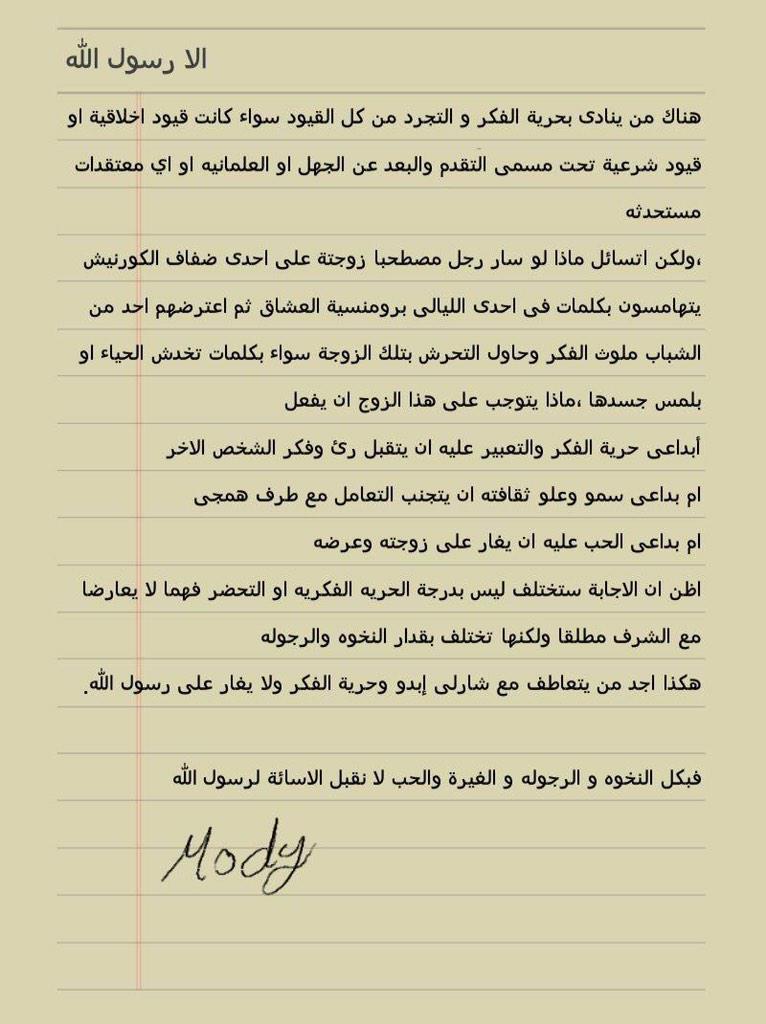 الا رسول الله
هناك من ينادى بحرية الفكر و التجرد من كل القيود سواء كانت قيود اخلاقية او
قيود شرعية تحت مسمى التقدم والبعد عن الجهل او العلمانيه او اي معتقدات
مستحدثه
،ولكن اتسائل ماذا لو سار رجل مصطحبا زوجتة على احدى ضفاف الكورنيش
يتهامسون بكلمات فى احدى الليالى برومنسية العشاق ثم اعترضهم احد من
الشباب ملوث الفكر وحاول التحرش بتلك الزوجة سواء بكلمات تخدش الحياء او
بلمس جسدها ،ماذا يتوجب على هذا الزوج ان يفعل
أبداعى حرية الفكر والتعبير عليه ان يتقبل رئ وفكر الشخص الاخر
ام بداعى سمو وعلو ثقافته ان يتجنب التعامل مع طرف همجى
ام بداعى الحب عليه ان يغار على زوجته وعرضه
اظن ان الاجابة ستختلف ليس بدرجة الحريه الفكريه او التحضر فهما لا يعارضا
مع الشرف مطلقا ولكنها تختلف بقدار النخوه والرجوله
هكذا اجد من يتعاطف مع شارلى إبدو وحرية الفكر ولا يغار على رسول الله.
فبكل النخوه و الرجوله و الغيرة والحب لا نقبل الاسائة لرسول الله
Mody